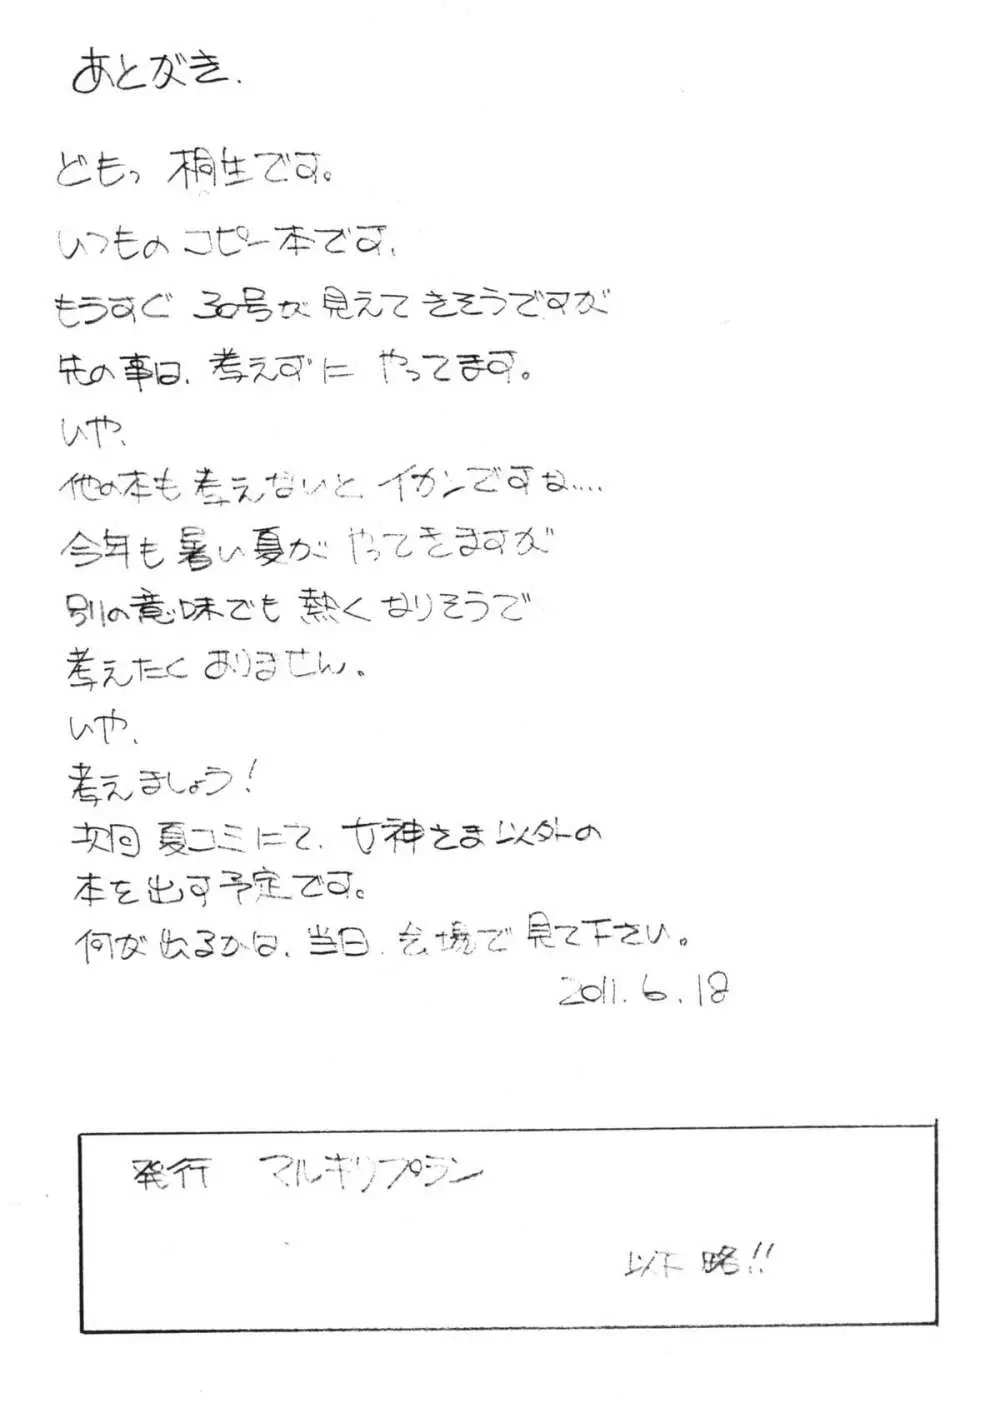 あとがき.
どもっ 桐生です。
いつものコピー本です.
もうすぐ 30号が見えてきそうですが
先の事は、考えずに やってます。
いや、
他の本も考えないと イカンですな....
今年も暑い夏が やってきますが
別の意味でも 熱くなりそうで
考えたくありません。
いや、
考えましょう!
次回 夏コミにて、女神さま以外の
本を出す予定です。
何が出るかは、当日、会場で見て下さい。
2011.6.18
発行 マルキリプラン
以下 略!!